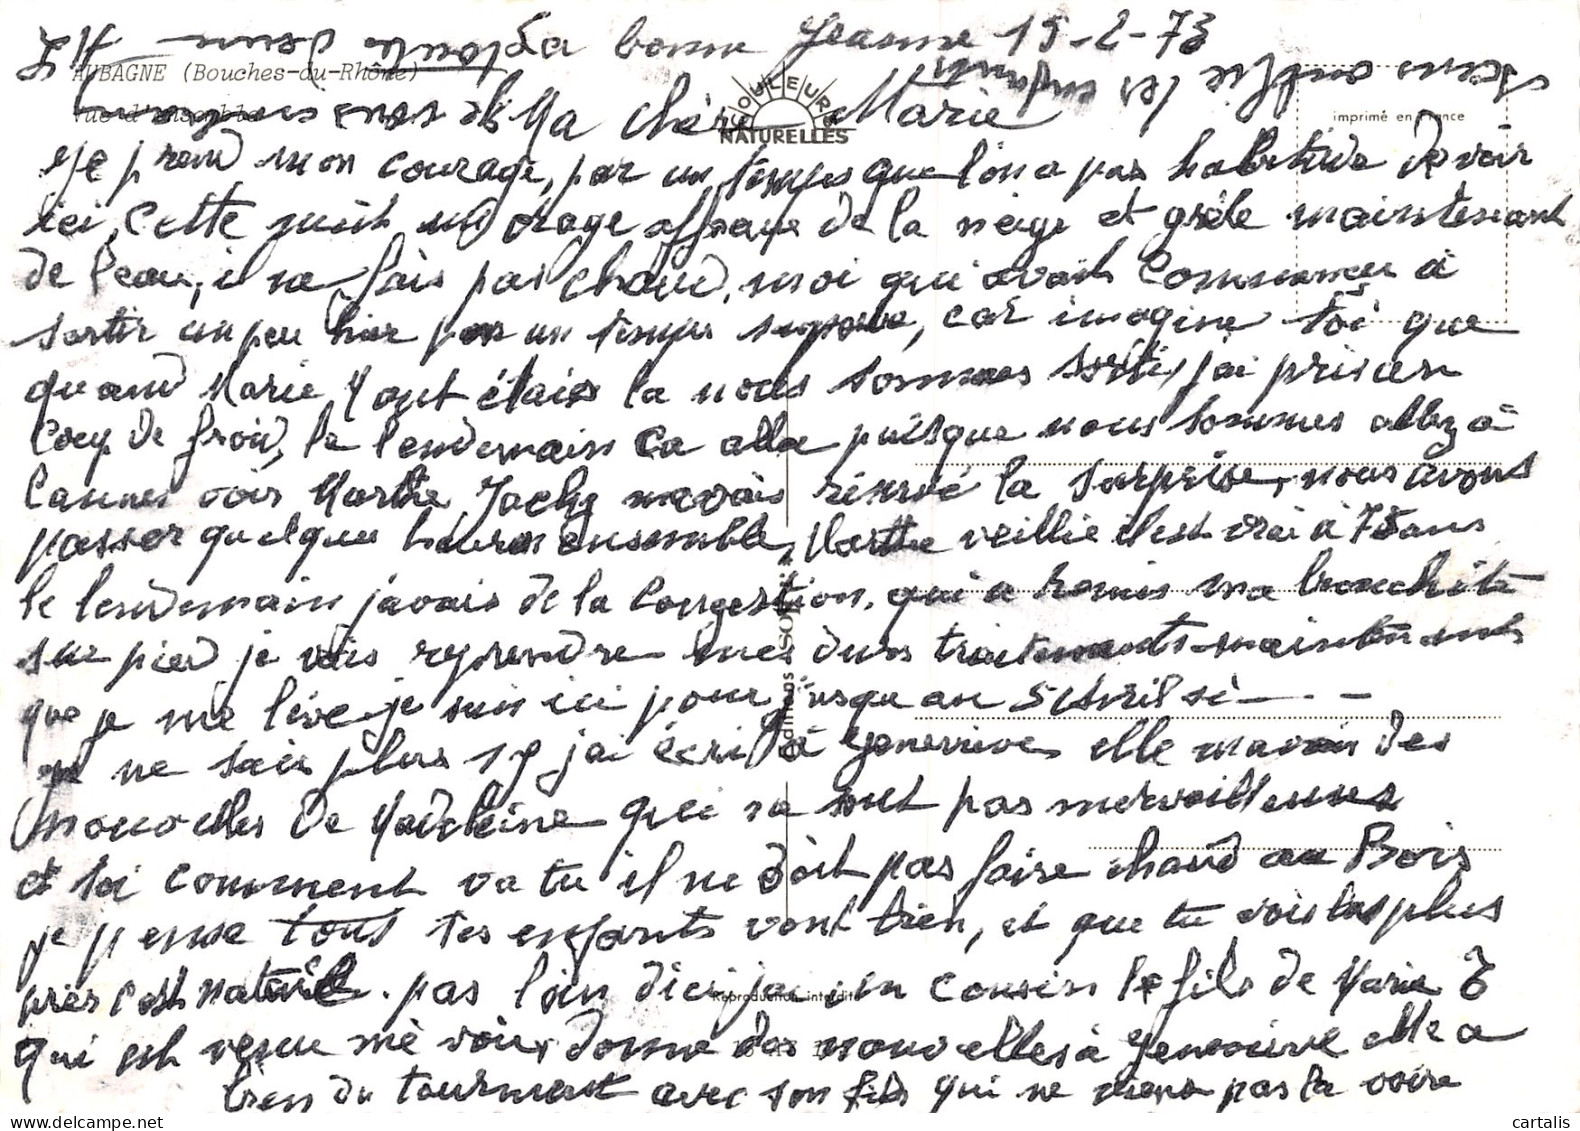 la bonne Jeanne 15-2-73
AUBAGNE (Bouches-du-Rhône)
COULEURS
NATURELLES
imprimé en France
Ma Chère Marie
je prend mon courage, par un temps que l'on a pas habitude de voir
ici, cette nuit un orage affreux de la neige et grèle maintenant
de l'eau, il ne fais pas chaud, moi qui avait commencer à
sortir un peu hier par un temps superbe, car imagine toi que
quand Marie Y ont étais la nous sommes sorti, j'ai pris un
coup de froid, le lendemain ca alla puisque nous sommes allez à
Cannes voir Marthe Jacky mavais réservé la surprise, nous avons
passer quelques heures ensemble, Marthe veillie il est vrai à 75 ans
le lendemain j'avais de la congestion, qui a remis ma bronchite
sur pied je vais reprendre mes durs traitements maintenant
que je me lève je suis ici pour jusqu au 5 Avril si - - -
je ne sais plus si j'ai écrit à Geneviève, elle mavais des
nouvelles de Madeleine qui ne sont pas merveilleuses
et toi comment va tu il ne doit pas faire chaud au Bois
je pense tous tes enfants vont bien, et que tu vois plus
près c'est naturel. pas loin d'ici j'ai un cousin le fils de Marie
Reproduction interdite
qui est venu me voir, donne des nouvelles à Geneviève elle a
bien du tourment avec son fils qui ne viens pas la voire
cartalis